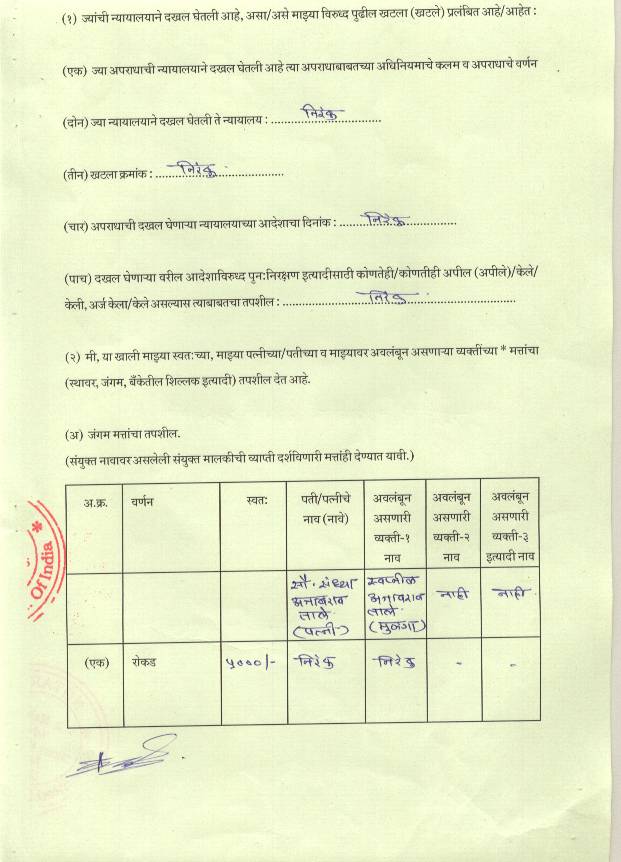 (१) ज्यांची न्यायालयाने दखल घेतली आहे, असा/असे माझ्या विरुध्द पुढील खटला (खटले) प्रलंबित आहे/आहेत :
(एक) ज्या अपराधाची न्यायालयाने दखल घेतली आहे त्या अपराधाबाबतच्या अधिनियमाचे कलम व अपराधाचे वर्णन
(दोन) ज्या न्यायालयाने दखल घेतली ते न्यायालय : निरंकु
(तीन) खटला क्रमांक : निरंकु
(चार) अपराधाची दखल घेणाऱ्या न्यायालयाच्या आदेशाचा दिनांक : निरंकु
(पाच) दखल घेणाऱ्या वरील आदेशाविरुध्द पुन:निरक्षण इत्यादीसाठी कोणतेही/कोणतीही अपील (अपीले)/केले/
केली, अर्ज केला/केले असल्यास त्याबाबतचा तपशील : निरंकु
(२) मी, या खाली माझ्या स्वत:च्या, माझ्या पत्नीच्या/पतीच्या व माझ्यावर अवलंबून असणाऱ्या व्यक्तींच्या * मत्तांचा
(स्थावर, जंगम, बँकेतील शिल्लक इत्यादी) तपशील देत आहे.
(अ) जंगम मत्तांचा तपशील.
(संयुक्त नावावर असलेली संयुक्त मालकीची व्याप्ती दर्शविणारी मत्तांही देण्यात यावी.)
अ.क्र. वर्णन स्वत: पती/पत्नीचे अवलंबून अवलंबून अवलंबून
नाव (नावे) असणारी असणारी असणारी
व्यक्ती-१ व्यक्ती-२ व्यक्ती-३
नाव नाव इत्यादी नाव
सौ. संध्या स्वप्नील नाही नाही
(पत्नी) (मुलगा)
(एक) रोकड ५०००/- निरंकु निरंकु - -
Of India *